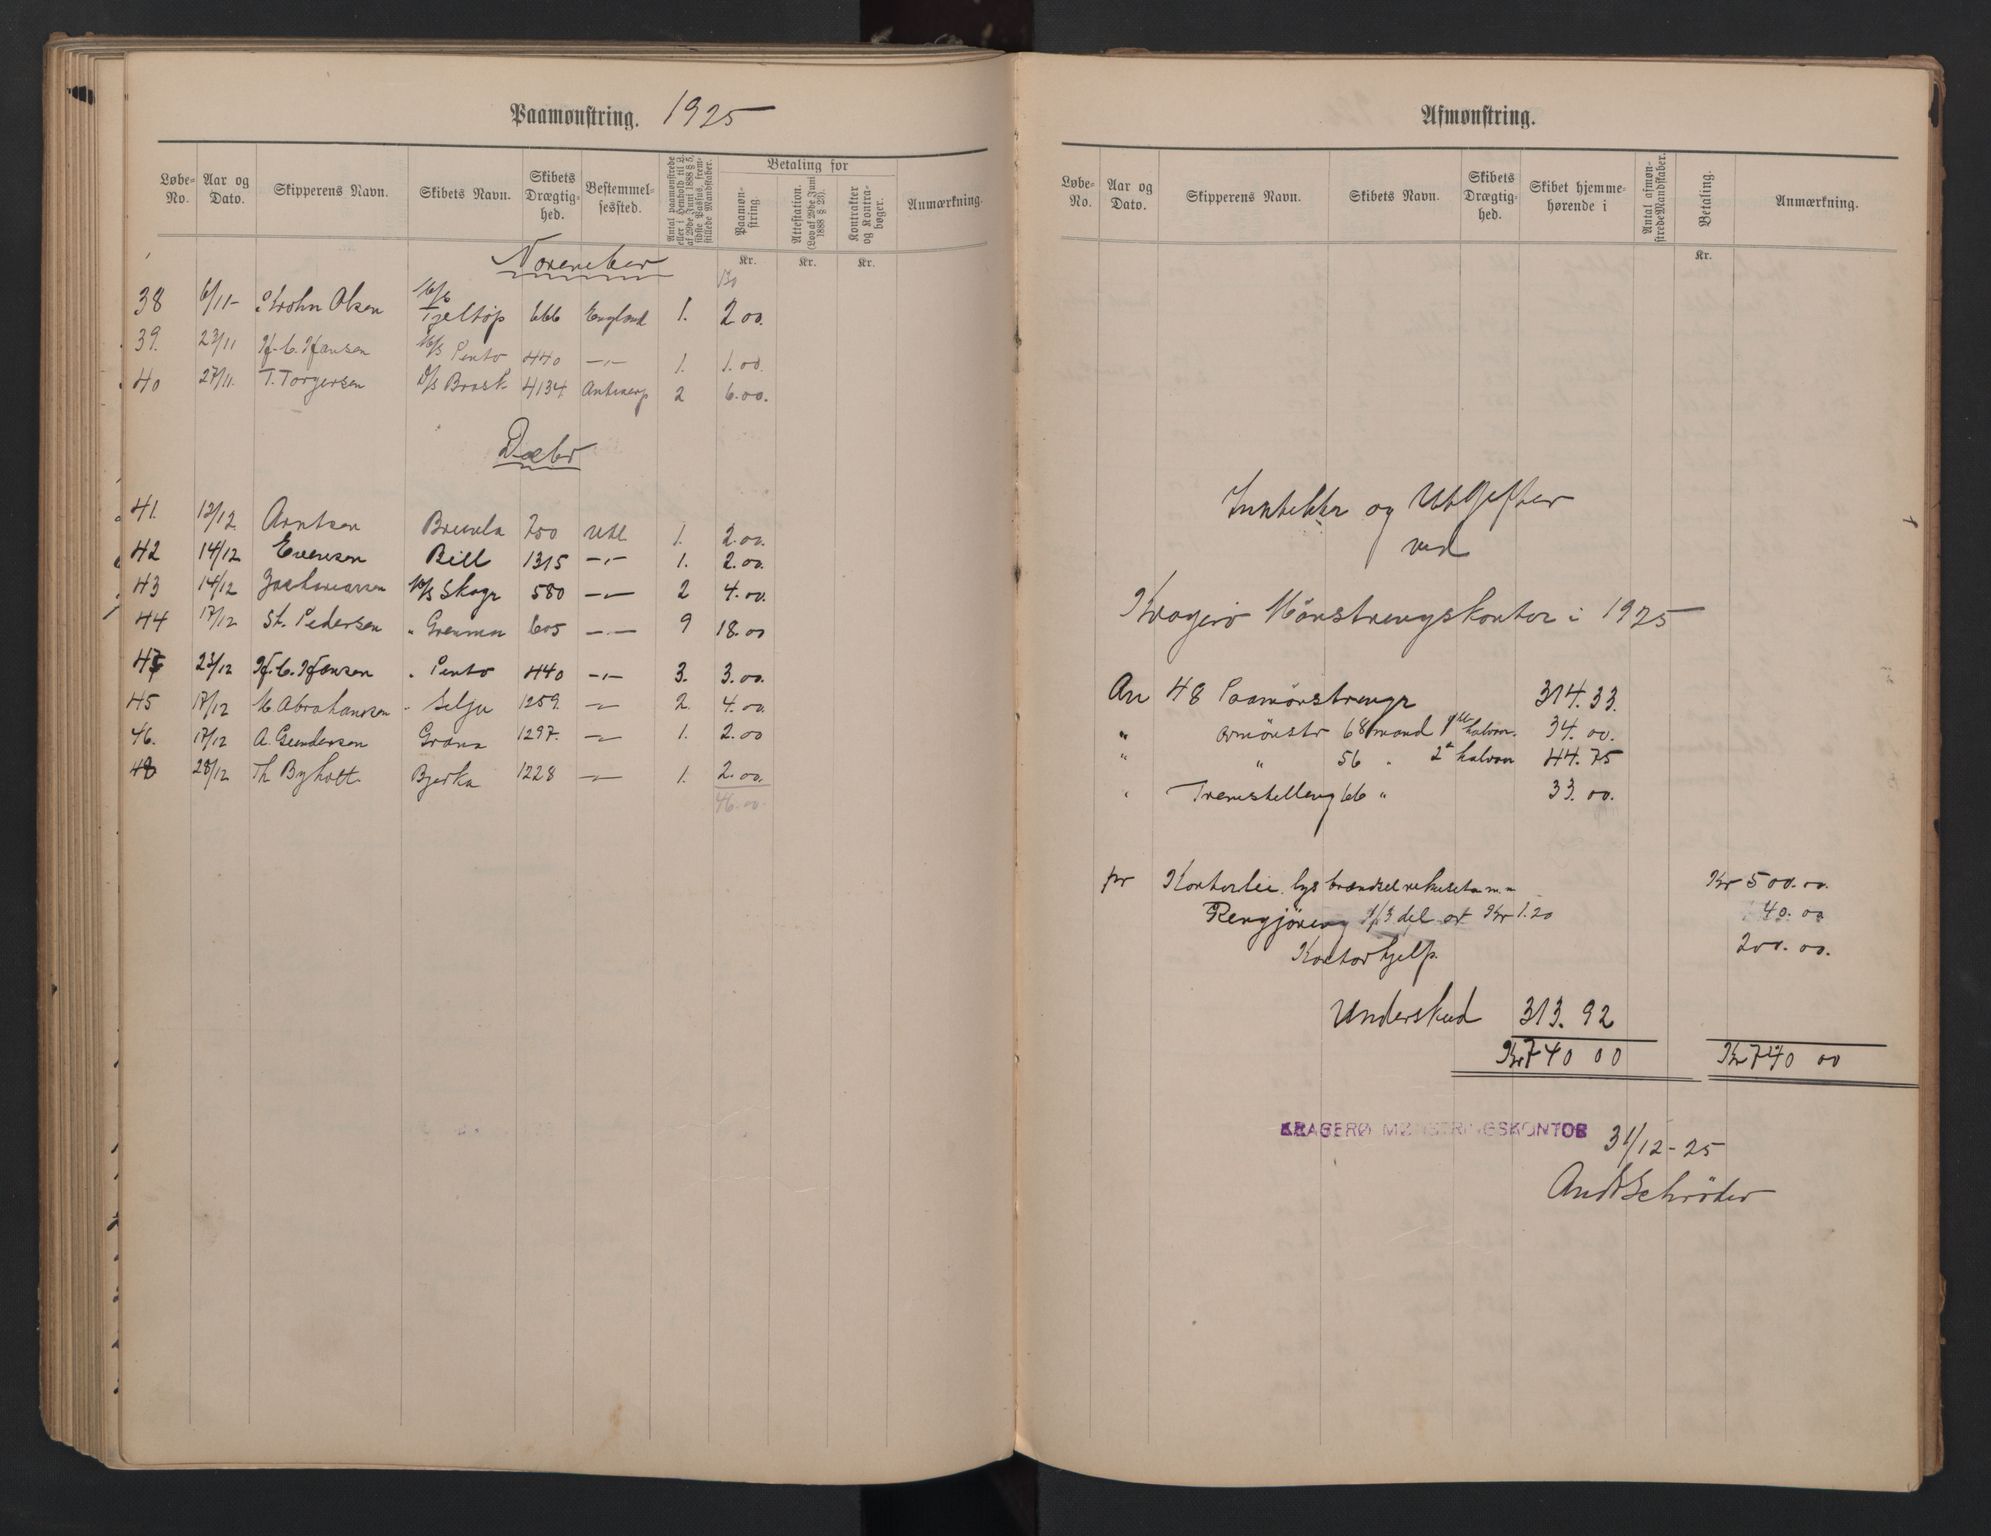 Paamønstring. 1925
Løbe-No. Aar og Dato. Skipperens Navn. Skibets Navn. Skibets Drægtighed. Bestemmelsessted. Antal paamønstrede eller i Henhold til L. af 29de Juni 1888 § 5, sidste Passus, fremstillede Mandskaber. Betaling for Paamønstring. Attestation. (Lov af 29de Juni 1888 § 23). Kontrakter og Kontrabøger. Anmærkning.
Kr. Kr. Kr.
November
38 6/11- Krohn Olsen M/S Tjeltop 666 England 1. 2.00.
39. 23/11 H. C. Hansen M/S Pento 440 —"— 1. 1.00.
40 27/11. T. Torgersen D/S Brask 4134 Antwerp 2 6.00.
Decbr
41. 12/12. Arntsen Brumla 700 Utl 1. 2.00.
42 14/12 Evensen Bill 1315 —"— 1. 2.00.
43 14/12 Zachariassen M/S Skagr 580 —"— 2 4.00.
44 17/12 St. Pedersen " Gremma 605 —"— 9 18.00
23/12 H. C. Hansen " Pento 440 —"— 3. 3.00.
45 17/12 M Abrahamsen " Selju 1259. —"— 2. 4.00.
46. 17/12 A. Gundersen Grana 1297. —"— 1. 2.00
48 28/12 Th Byholt Bjerka 1228 —"— 1. 2.00.
46.00.
Afmønstring.
Løbe-No. Aar og Dato. Skipperens Navn. Skibets Navn. Skibets Drægtighed. Skibet hjemmehørende i Antal afmønstrede Mandskaber. Betaling. Anmærkning.
Kr.
Inntekter og Utgifter
ved
Kragerø Mønstringskontor i 1925
An 48 Paamønstringr 314.33.
" avmønstr 68 mand 1ste halvaar. 34.00.
" " 56 " 2. halvaar 44.75
" Fremstilling 66 " 33.00.
pr Kontorleie, lys brændsel rekvisita m.m Kr 500.00.
Rengjøring 1/3 del av Kr 1.20 40.00
Kontorhjelp. 200.00.
Underskud 313.92
Kr 740 00 Kr 740 00
KRAGERØ MØNSTRINGSKONTOR 31/12-25
And Schrøder